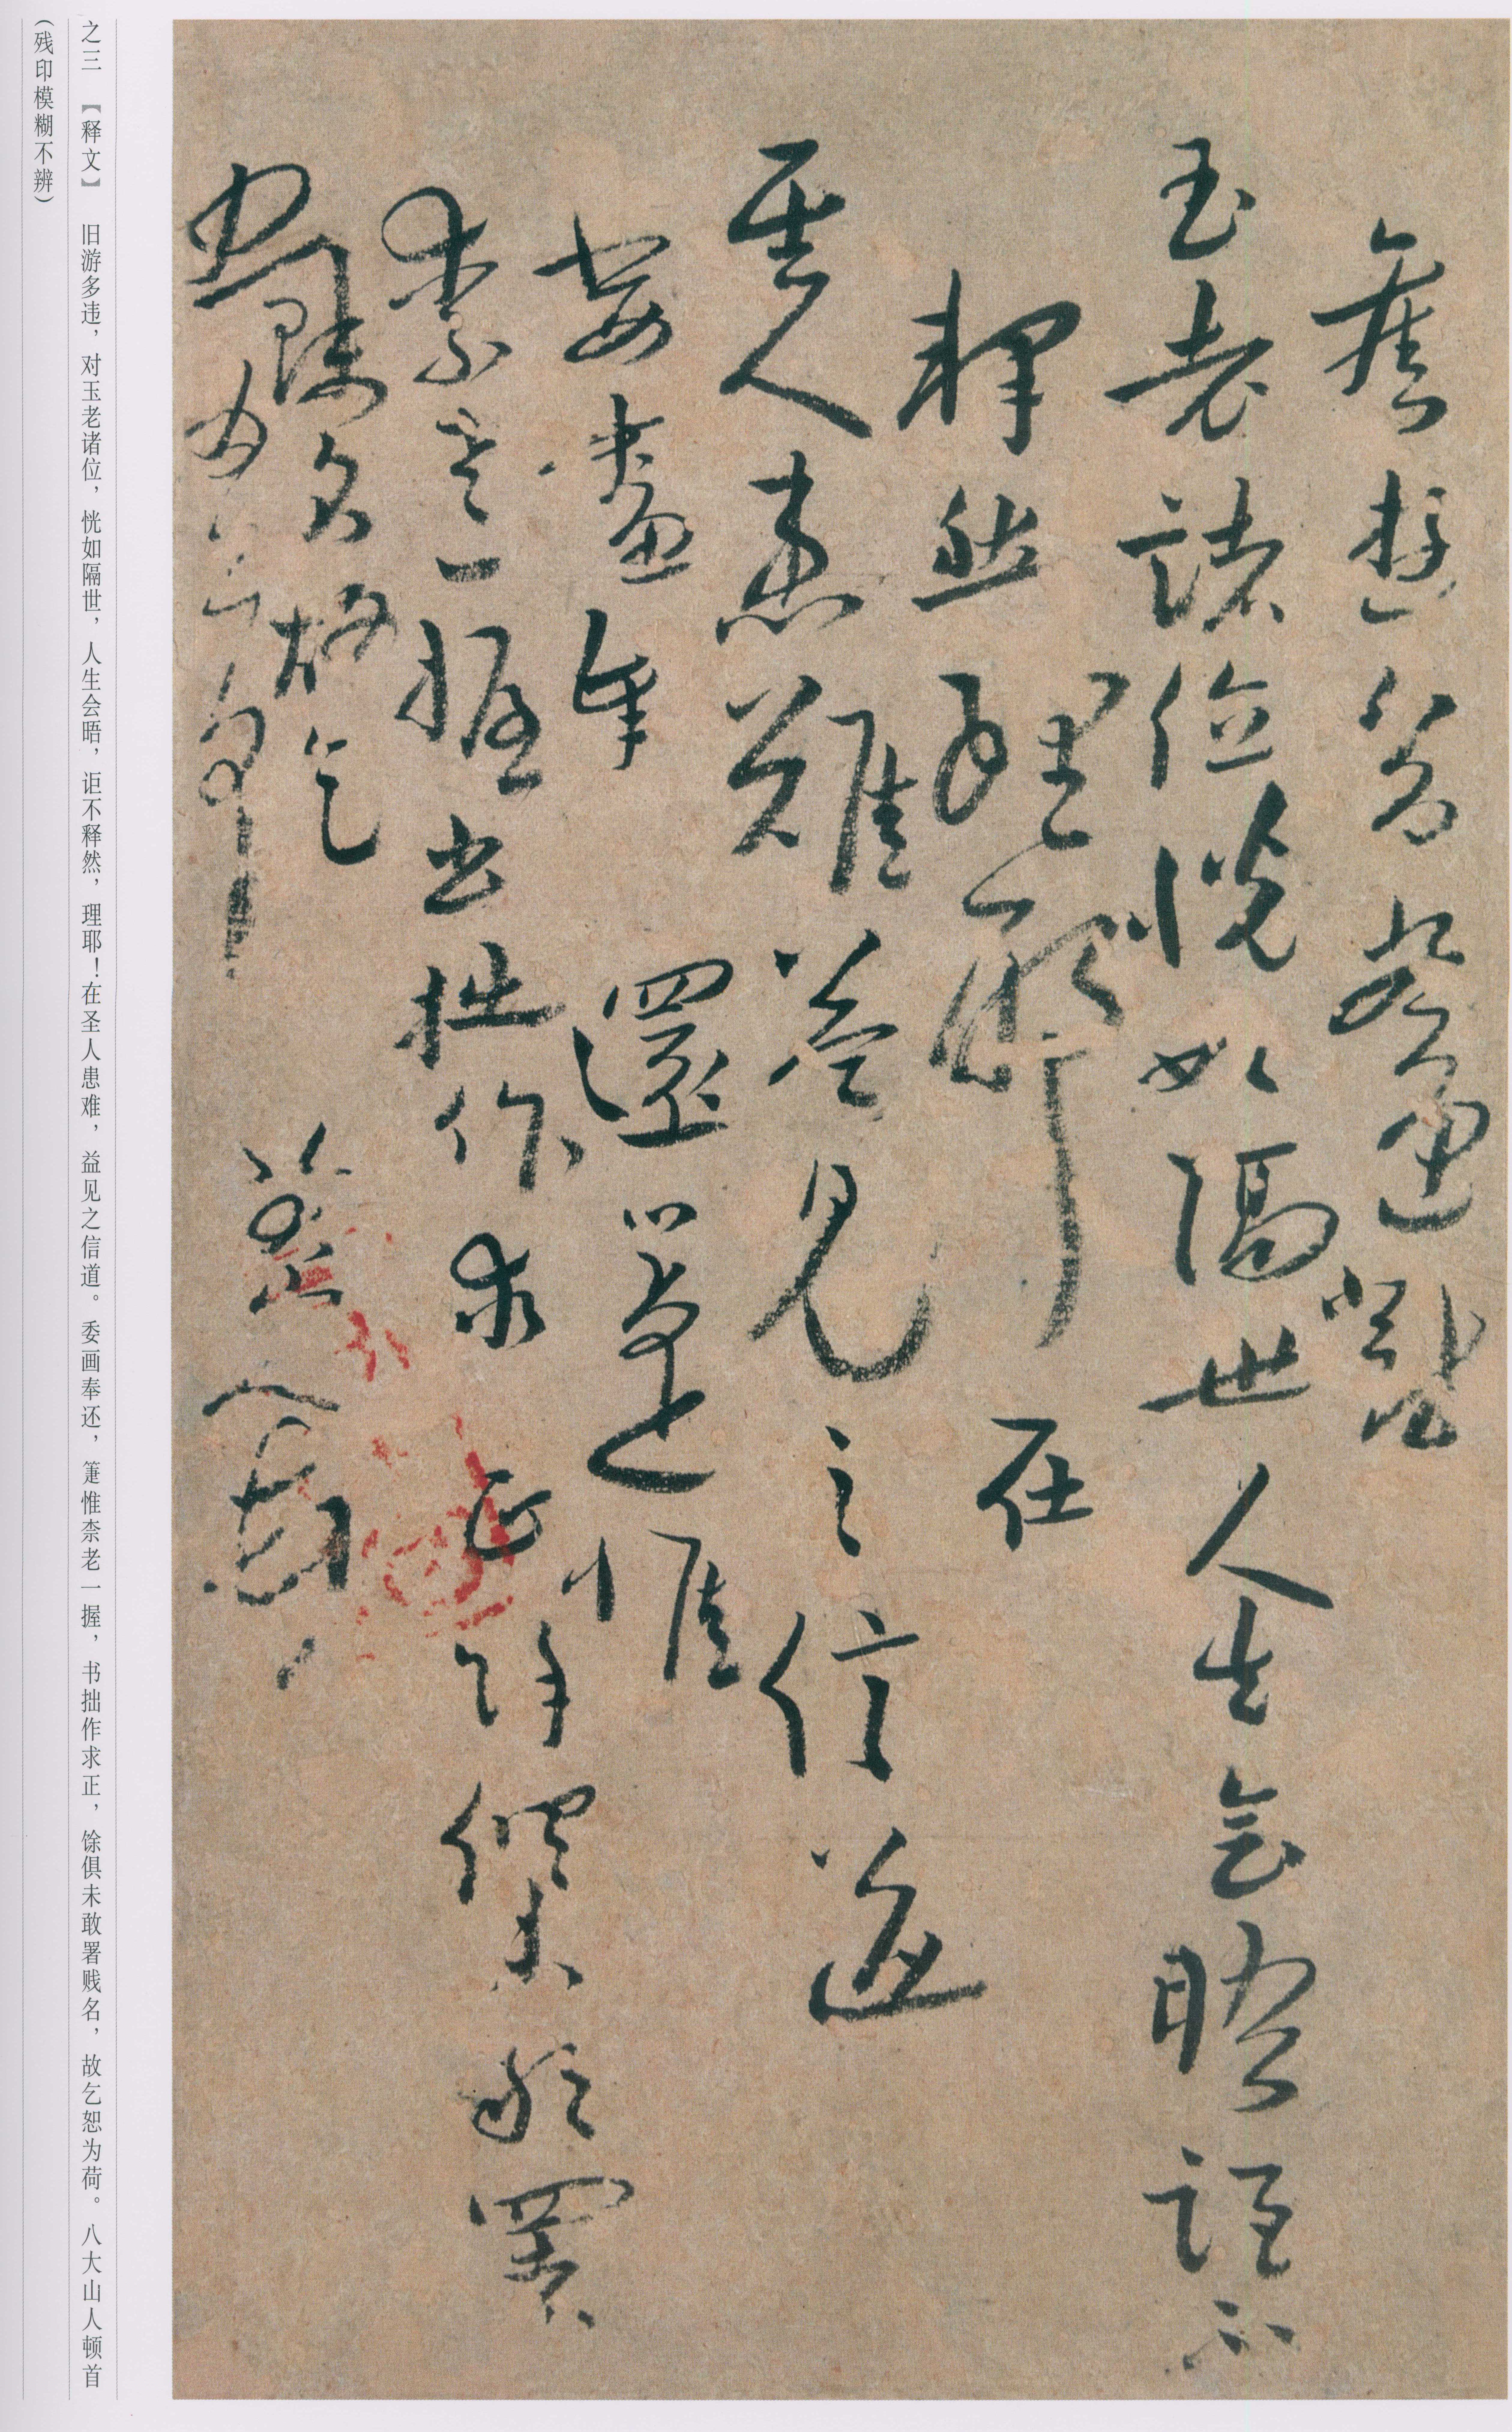 舊遊多違對
玉老諸位恍如隔世人生會晤詎不
釋然理耶在
聖人患難益見之信道
委畫奉還箑惟
柰老一握書拙作求正餘俱未敢署
賤名故乞
恕為荷 八大山人頓首
之三 【释文】 旧游多违，对玉老诸位，恍如隔世，人生会晤，讵不释然，理耶！在圣人患难，益见之信道。委画奉还，箑惟柰老一握，书拙作求正，馀俱未敢署贱名，故乞恕为荷。八大山人顿首
（残印模糊不辨）